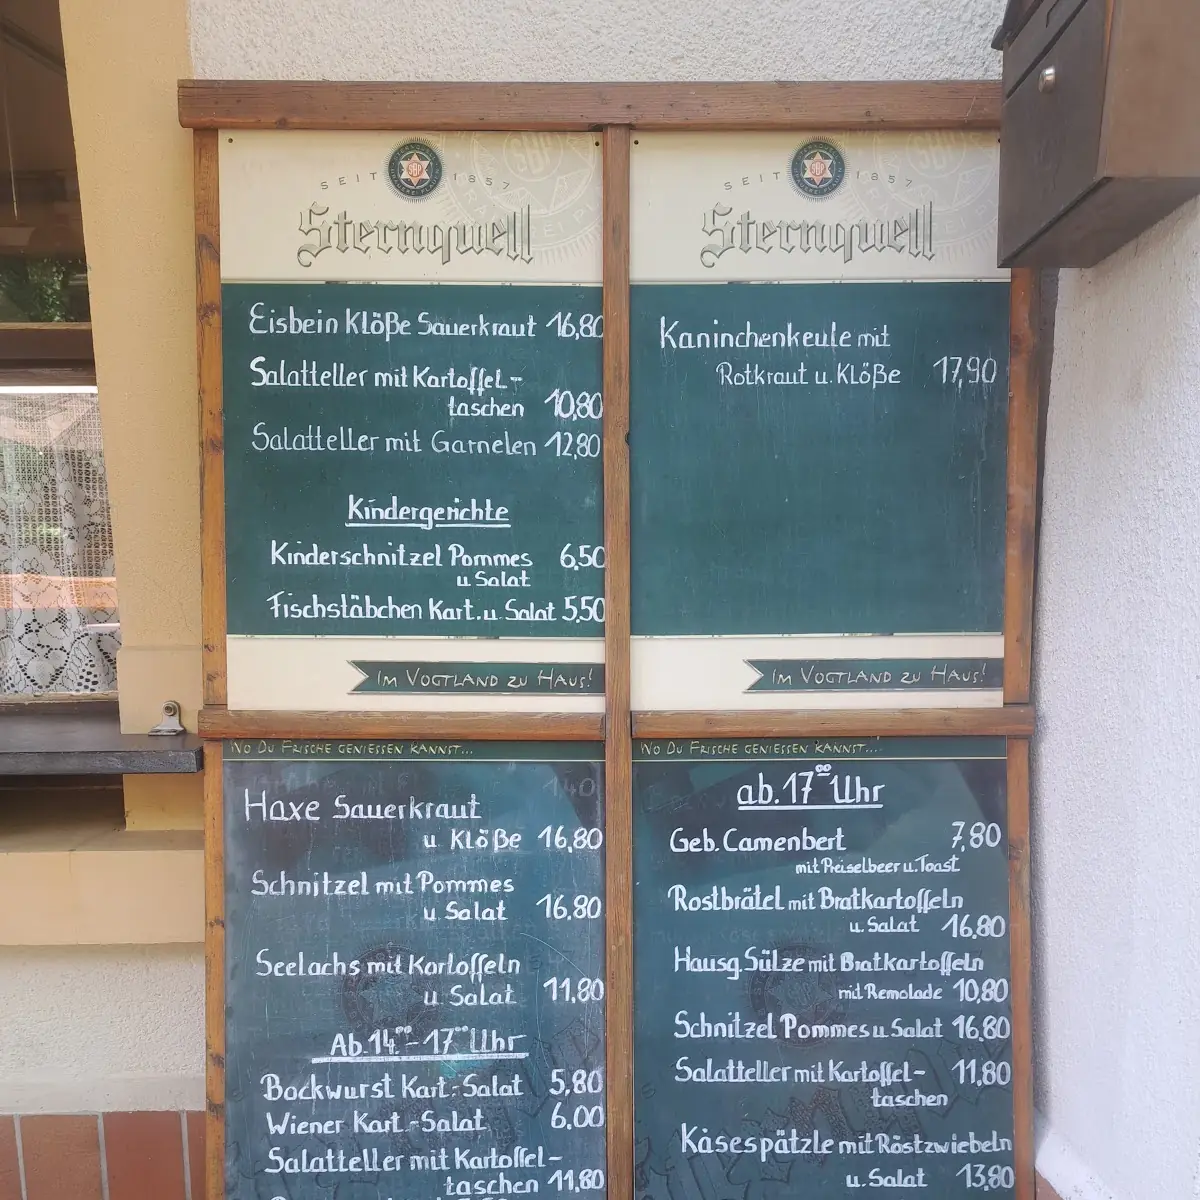 SEIT 1857
Sternquell
Eisbein Klöße Sauerkraut 16,80
Salatteller mit Kartoffel-
taschen 10,80
Salatteller mit Garnelen 12,80
Kindergerichte
Kinderschnitzel Pommes 6,50
u. Salat
Fischstäbchen Kart. u. Salat 5,50
IM VOGTLAND ZU HAUS!
SEIT 1857
Sternquell
Kaninchenkeule mit
Rotkraut u. Klöße 17,90
IM VOGTLAND ZU HAUS!
WO DU FRISCHE GENIESSEN KANNST...
Haxe Sauerkraut
u. Klöße 16,80
Schnitzel mit Pommes
u. Salat 16,80
Seelachs mit Kartoffeln
u. Salat 11,80
Ab 14.00 - 17.00 Uhr
Bockwurst Kart.-Salat 5,80
Wiener Kart.-Salat 6,00
Salatteller mit Kartoffel-
taschen 11,80
WO DU FRISCHE GENIESSEN KANNST....
ab. 17.00 Uhr
Geb. Camenbert 7,80
mit Preiselbeer u. Toast
Rostbrätel mit Bratkartoffeln
u. Salat 16,80
Hausg. Sülze mit Bratkartoffeln
mit Remolade 10,80
Schnitzel Pommes u. Salat 16,80
Salatteller mit Kartoffel- 11,80
taschen
Käsespätzle mit Röstzwiebeln
u. Salat 13,80